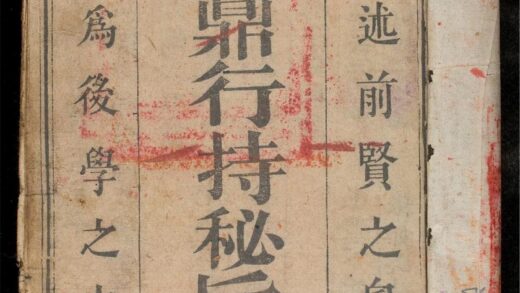 述前賢之
鼎行持秘
爲後學之